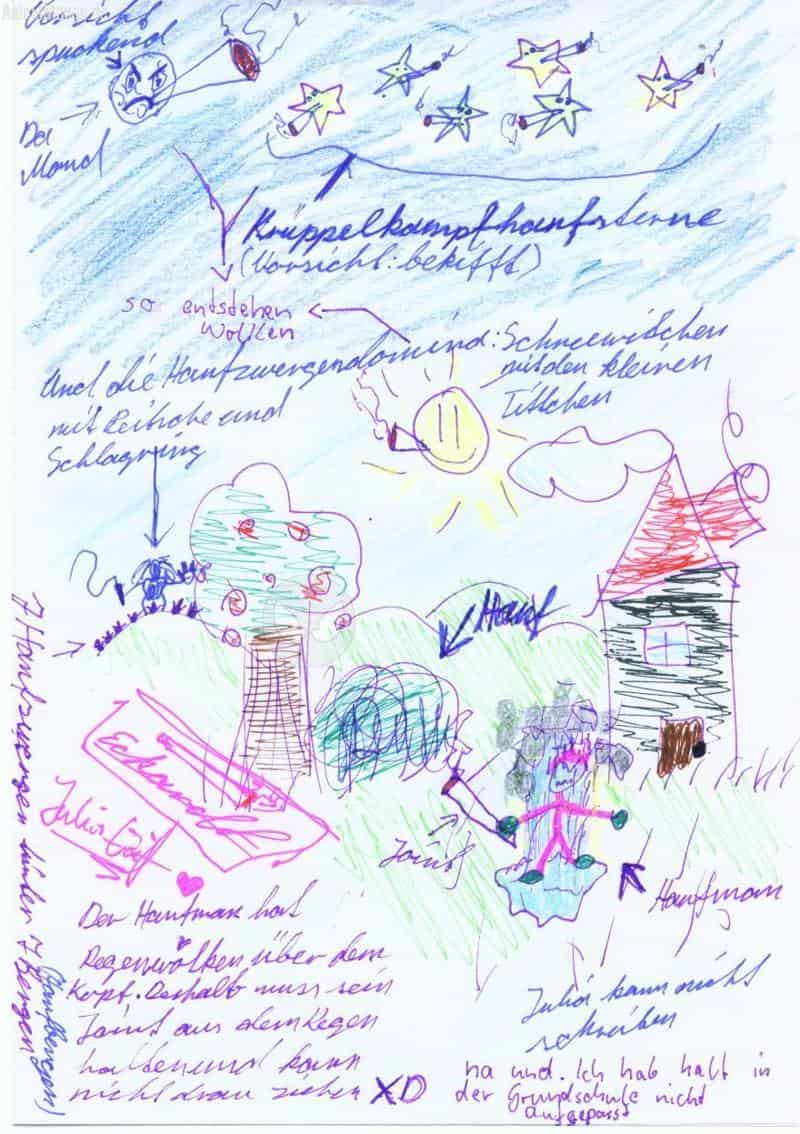 Vorsicht
spuckend
Der
Mond
Krüppelkampfhanfsterne
(Vorsicht: bekifft)
so entstehen
Wolken
Und die Hanfzwergendomina: Schneewitchen
mit den kleinen
Tittchen
mit Peitsche und
Schlagring
Hanf
7 Hanfzwergen hinter 7 Bergen
(Hanfbergen)
Julia
Joint
Hanfmann
Der Hanfman hat
Regenwolken über dem
Kopf. Deshalb muss sein
Joint aus dem Regen
halten und kann
nicht dran ziehen XD
Julia kann nicht
schreiben
na und. Ich hab halt in
der Grundschule nicht
aufgepasst